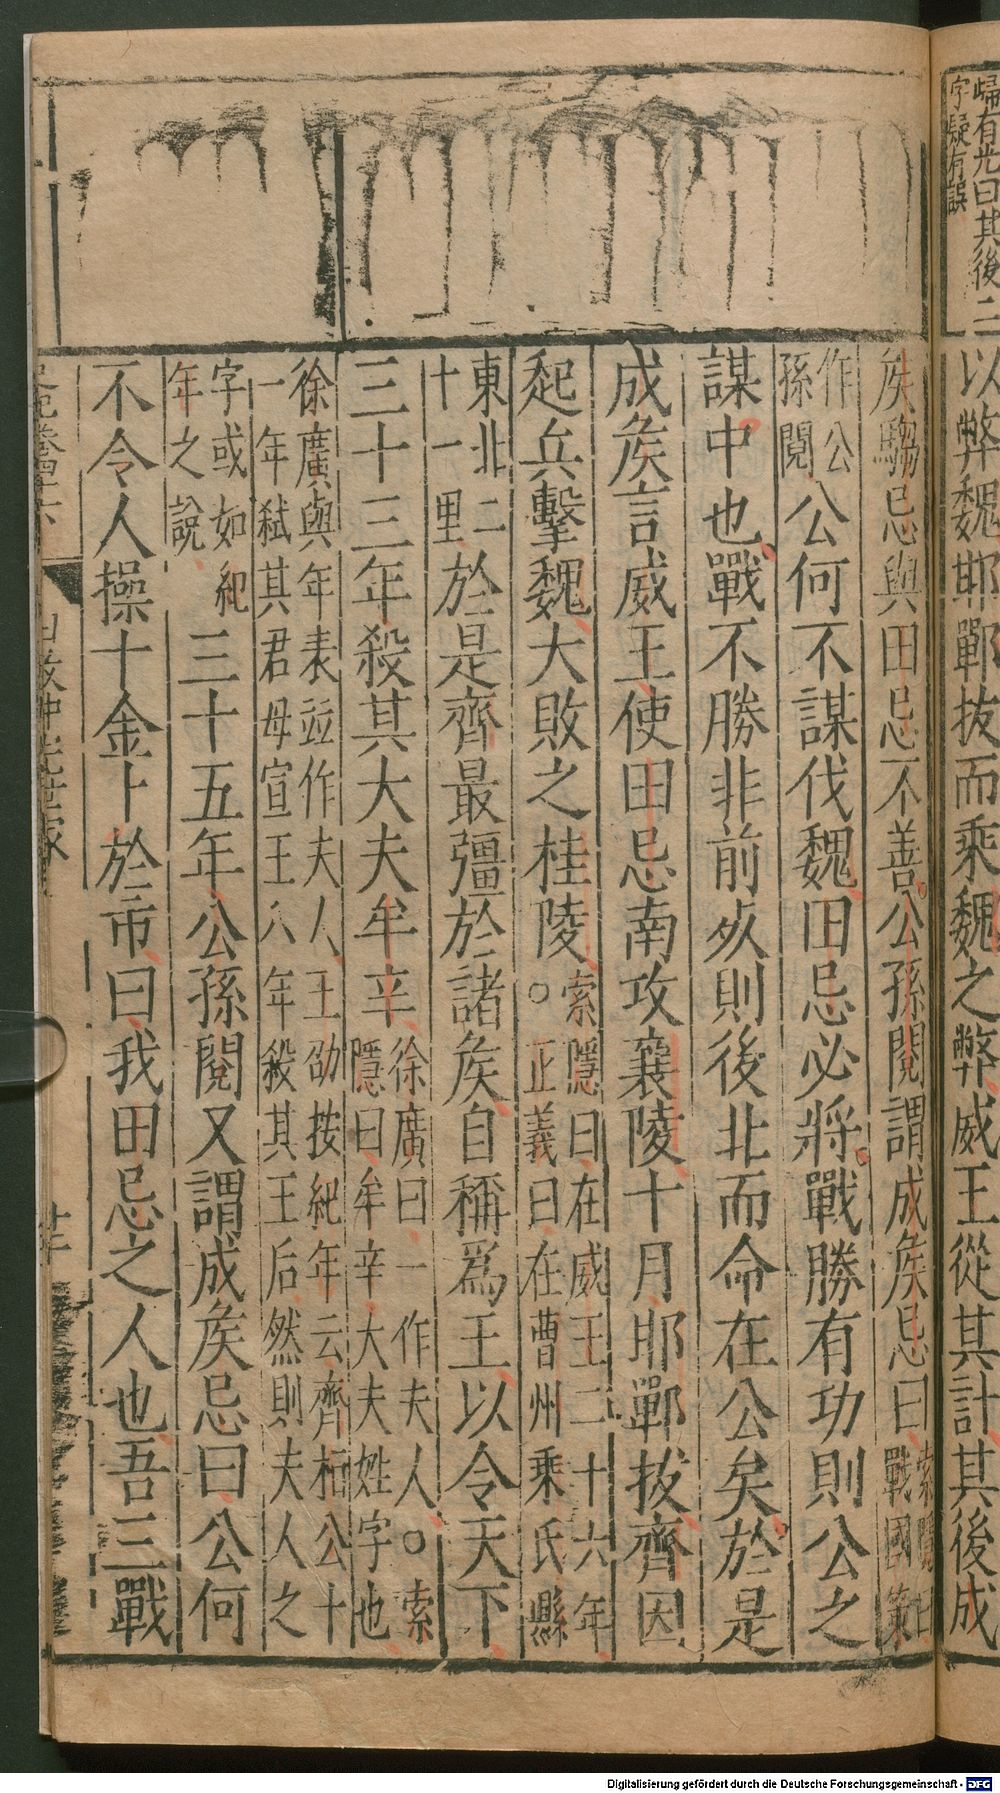 歸有光曰其後二
字疑有誤
以弊魏邯鄲拔而乘魏之弊威王從其計其後成
矦騶忌與田忌不善公孫閱謂成矦忌曰索隱曰
戰國策
作公
孫閱公何不謀伐魏田忌必將戰勝有功則公之
謀中也戰不勝非前死則後北而命在公矣於是
成矦言威王使田忌南攻襄陵十月邯鄲拔齊因
起兵擊魏大敗之桂陵○索隱曰在威王二十六年
正義曰在曹州乘氏縣
東北二
十一里於是齊最彊於諸矦自稱爲王以令天下
三十三年殺其大夫牟辛徐廣曰一作夫人○索
隱曰牟辛大夫姓字也
徐廣與年表竝作夫人王劭按紀年云齊桓公十
一年弑其君母宣王八年殺其王后然則夫人之
字或如紀
年之說三十五年公孫閱又謂成矦忌曰公何
不令人操十金卜於市曰我田忌之人也吾三戰
史記卷四十六
田敬仲完世家
Digitalisierung gefördert durch die Deutsche Forschungsgemeinschaft - DFG